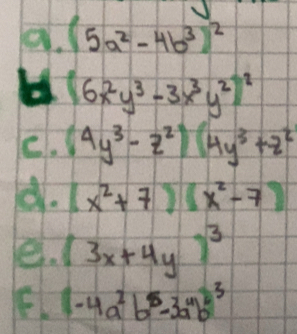 a. (5a² - 4b³)²
b. (6x²y³ - 3x³y²)²
c. (4y³ - z²)(4y³ + z²
d. (x² + 7)(x² - 7)
e. (3x + 4y)³
F. (-4a²b⁵ - 3a⁴b⁶)³